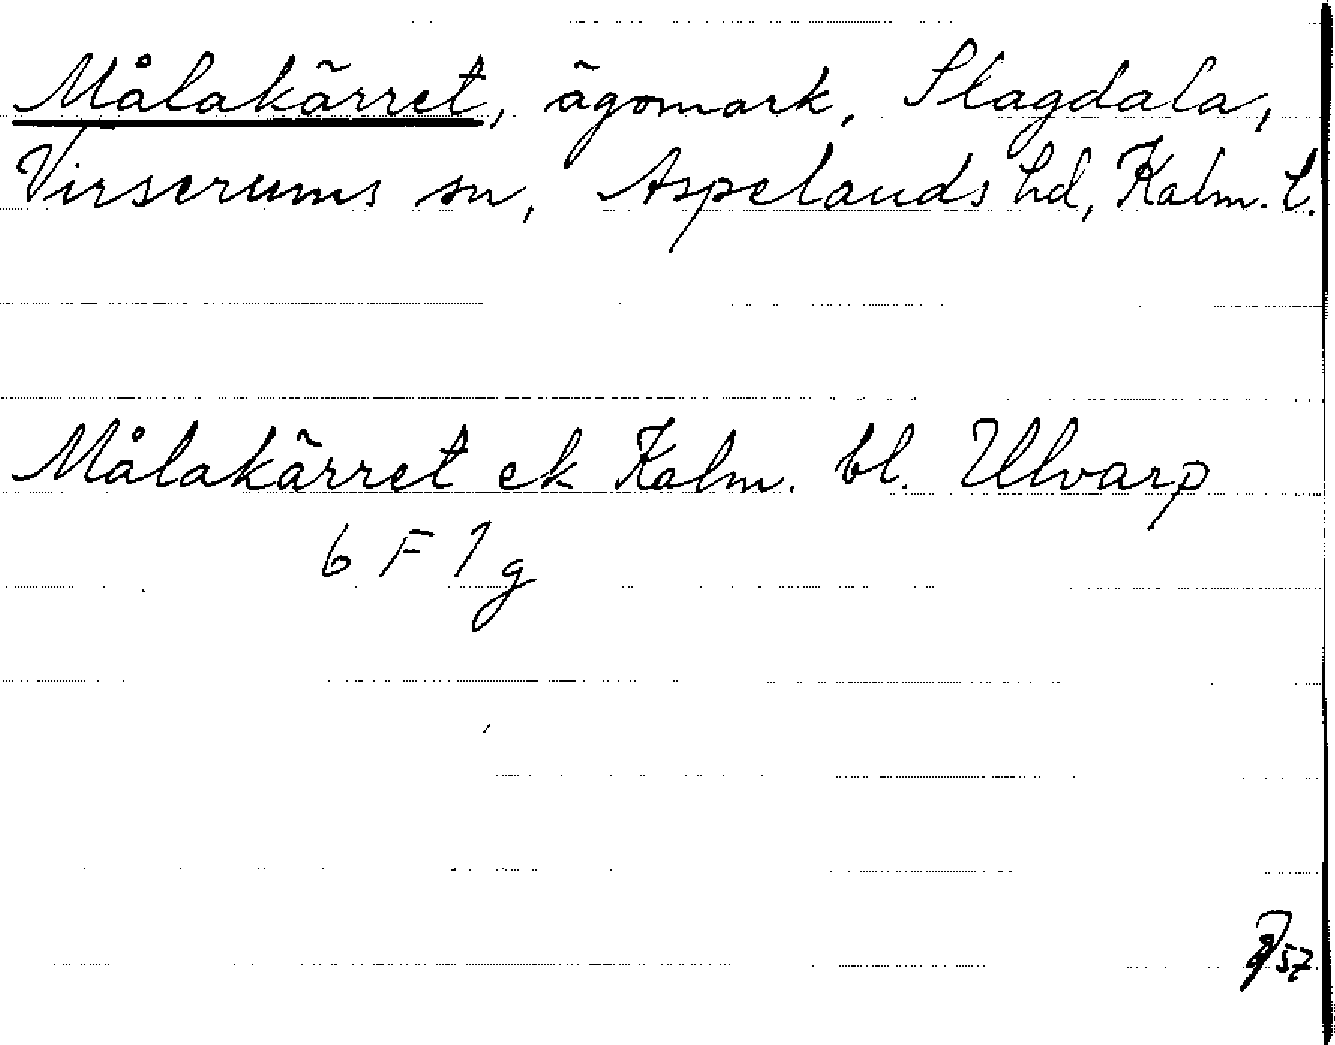 Målakärret, ägomark, Slagdala,
Virserums sn, Aspelands hd, Kalm. l.
Målakärret ek Kalm. bl. Ulvarp
6 F 1 g
57